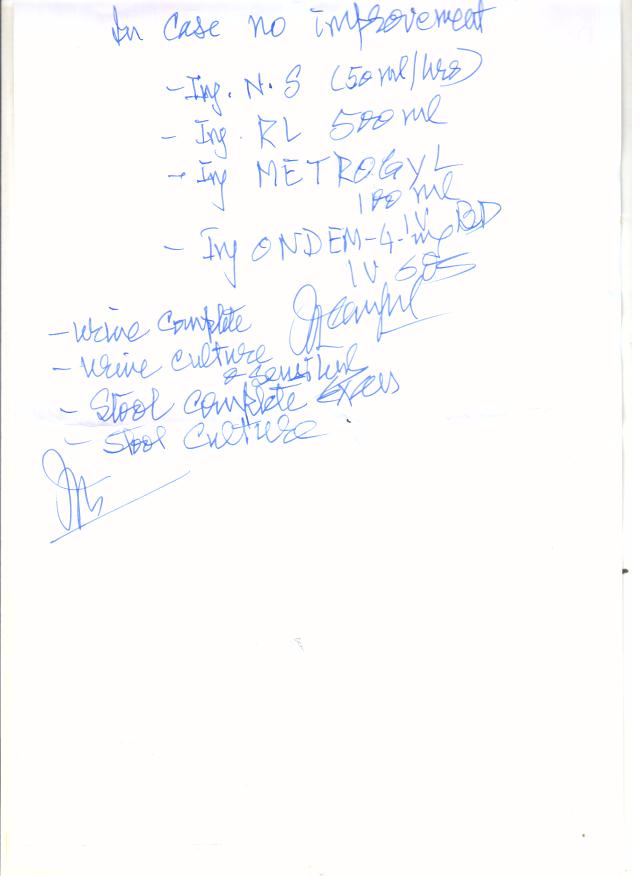 In case no improvement
- Inj. N.S (50 ml/hrs)
- Inj. RL 500 ml
- Inj METROGYL
100 ml
IV BD
- Inj ONDEM-4-mg
IV SOS
- Urine Complete
- Urine culture
& sensitivity
- Stool complete Exam
- Stool Culture